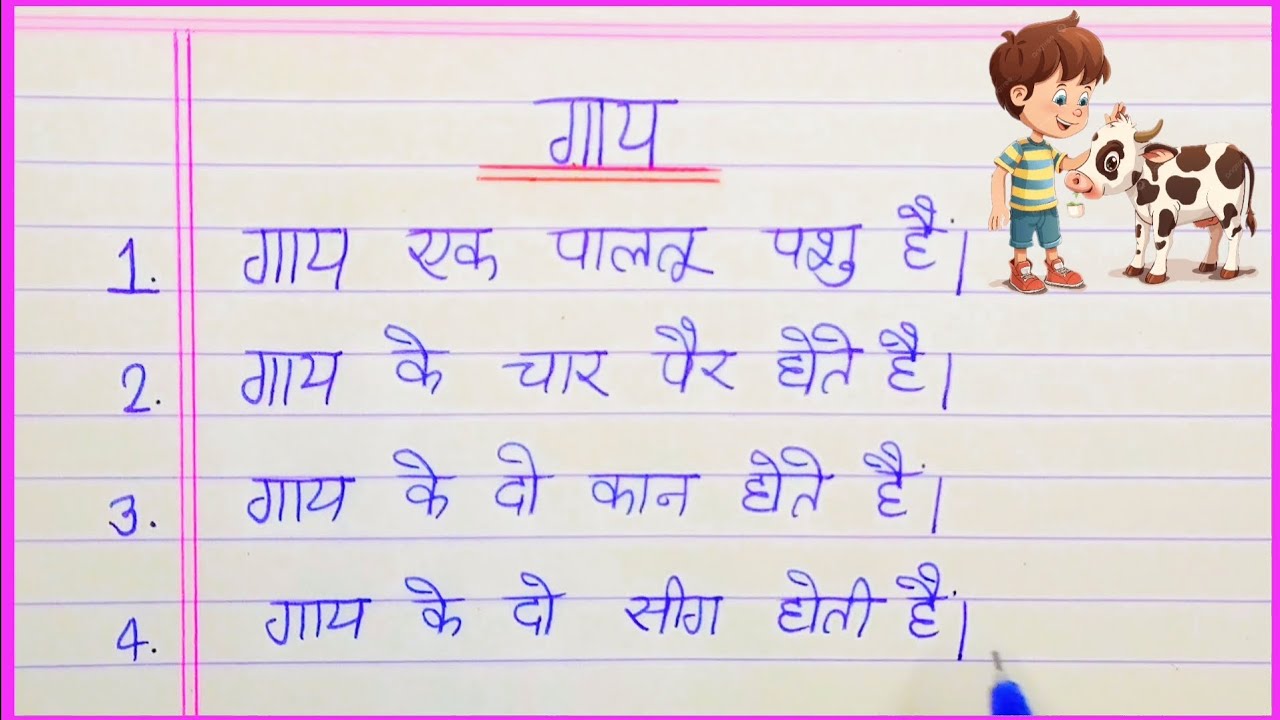 गाय
1. गाय एक पालतू पशु हैं।
2. गाय के चार पैर होते है।
3. गाय के दो कान होते हैं।
4. गाय के दो सीग होती हैं।